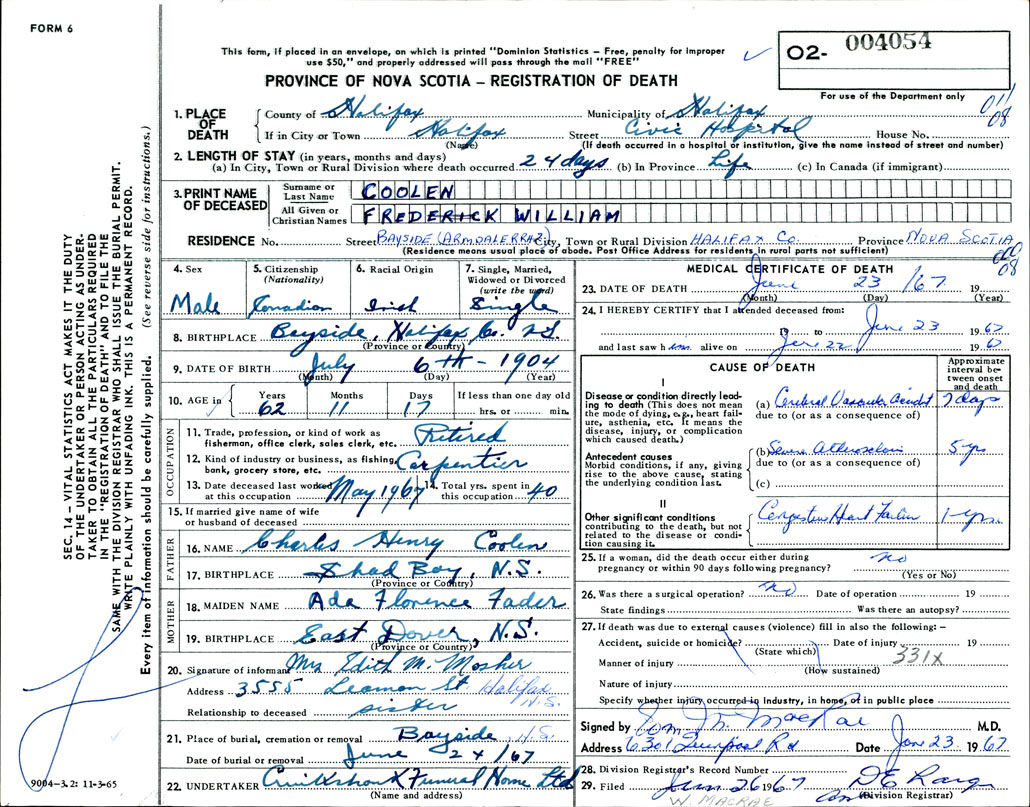 FORM 6
This form, if placed in an envelope, on which is printed "Dominion Statistics – Free, penalty for improper
use $50," and properly addressed will pass through the mail "FREE"
PROVINCE OF NOVA SCOTIA – REGISTRATION OF DEATH
O2- 004054
For use of the Department only
011
08
1. PLACE OF DEATH
County of Halifax Municipality of Halifax
If in City or Town Halifax Street Civic Hospital House No.
(Name) (If death occurred in a hospital or institution, give the name instead of street and number)
2. LENGTH OF STAY (in years, months and days)
(a) In City, Town or Rural Division where death occurred 24 days (b) In Province Life (c) In Canada (if immigrant)
3. PRINT NAME OF DECEASED
Surname or Last Name COOLEN
All Given or Christian Names FREDERICK WILLIAM
RESIDENCE No. Street BAYSIDE (ARMDALE RR#2) City, Town or Rural Division HALIFAX CO. Province NOVA SCOTIA
(Residence means usual place of abode. Post Office Address for residents in rural parts not sufficient)
08
4. Sex Male
5. Citizenship (Nationality) Canadian
6. Racial Origin Irish
7. Single, Married, Widowed or Divorced (write the word) Single
8. BIRTHPLACE Bayside, Halifax Co. N.S.
(Province or Country)
9. DATE OF BIRTH July 6th – 1904
(Month) (Day) (Year)
10. AGE in Years 62 Months 11 Days 17 If less than one day old hrs. or min.
OCCUPATION
11. Trade, profession, or kind of work as fisherman, office clerk, sales clerk, etc. Retired
12. Kind of industry or business, as fishing, bank, grocery store, etc. Carpentier
13. Date deceased last worked at this occupation May 1967 14. Total yrs. spent in this occupation 40
15. If married give name of wife or husband of deceased
FATHER
16. NAME Charles Henry Coolen
17. BIRTHPLACE Shad Bay, N.S.
(Province or Country)
MOTHER
18. MAIDEN NAME Ada Florence Fader
19. BIRTHPLACE East Dover, N.S.
(Province or Country)
20. Signature of informant Mrs Edith M. Mosher
Address 3555 Leaman St. Halifax N.S.
Relationship to deceased sister
21. Place of burial, cremation or removal Bayside N.S.
Date of burial or removal June 24/67
22. UNDERTAKER Cruikshank Funeral Home Ltd
(Name and address)
MEDICAL CERTIFICATE OF DEATH
23. DATE OF DEATH June 23 /67 19
(Month) (Day) (Year)
24. I HEREBY CERTIFY that I attended deceased from:
19 to June 23 1967
and last saw him alive on June 22 1967
CAUSE OF DEATH
Approximate interval between onset and death
I
Disease or condition directly leading to death (This does not mean the mode of dying, e.g., heart failure, asthenia, etc. It means the disease, injury, or complication which caused death.)
(a) Cerebral Vascular Accident 7 days
due to (or as a consequence of)
Antecedent causes
Morbid conditions, if any, giving rise to the above cause, stating the underlying condition last.
(b) Severe 5 yrs
due to (or as a consequence of)
(c)
II
Other significant conditions contributing to the death, but not related to the disease or condition causing it. Congestive Heart Failure 1 yr.
25. If a woman, did the death occur either during pregnancy or within 90 days following pregnancy? no
(Yes or No)
26. Was there a surgical operation? no Date of operation 19
State findings Was there an autopsy?
27. If death was due to external causes (violence) fill in also the following: –
Accident, suicide or homicide? Date of injury 19
(State which) 331X
Manner of injury (How sustained)
Nature of injury
Specify whether injury occurred in industry, in home, or in public place
Signed by MacRae M.D.
Address 6301 Quinpool Rd Date June 23 1967
28. Division Registrar's Record Number
29. Filed Jun 26 1967
(Division Registrar)
W. MACRAE
SEC. 14 – VITAL STATISTICS ACT MAKES IT THE DUTY
OF THE UNDERTAKER OR PERSON ACTING AS UNDER-
TAKER TO OBTAIN ALL THE PARTICULARS REQUIRED
IN THE "REGISTRATION OF DEATH" AND TO FILE THE
SAME WITH THE DIVISION REGISTRAR WHO SHALL ISSUE THE BURIAL PERMIT.
WRITE PLAINLY WITH UNFADING INK. THIS IS A PERMANENT RECORD.
Every item of information should be carefully supplied. (See reverse side for instructions.)
9004–3.2: 11-3-65